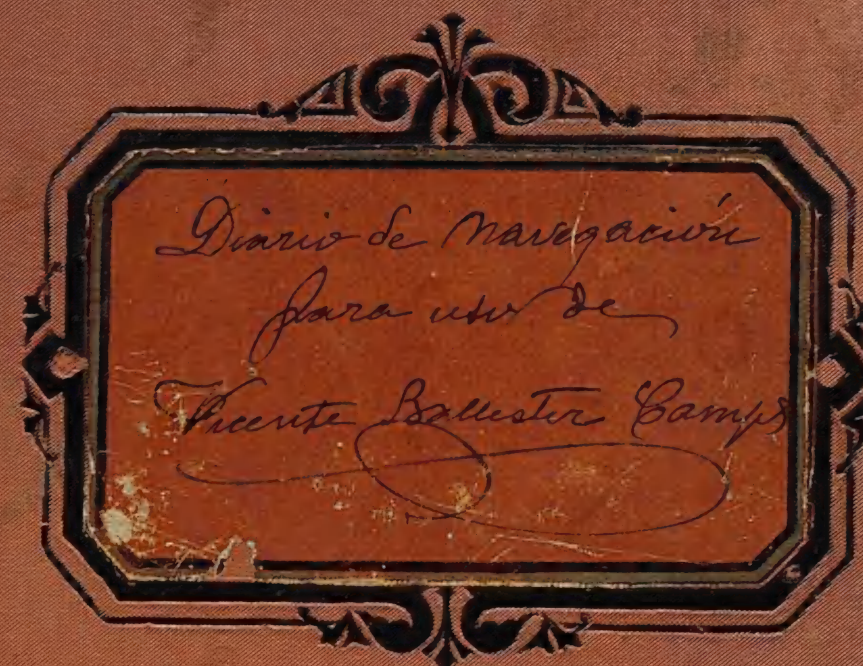 Diario de Navegación
para uso de
Vicente Ballester Camps